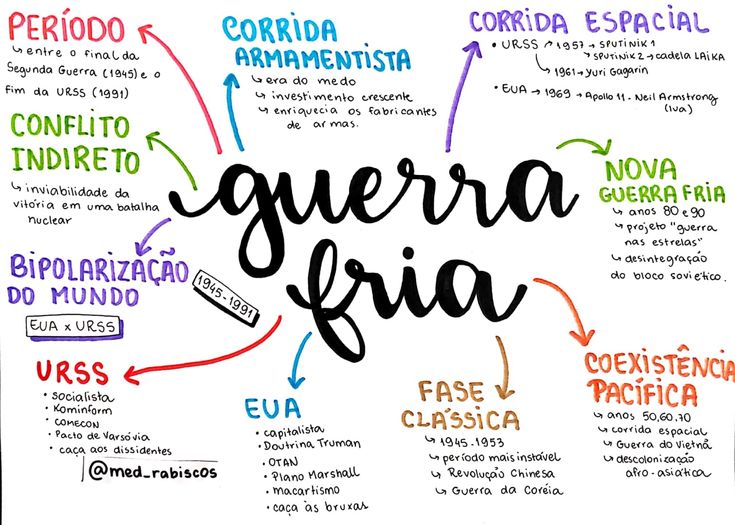 PERÍODO
↳ entre o final da
Segunda Guerra (1945) e o
fim da URSS (1991)
CORRIDA
ARMAMENTISTA
↳ era do medo
↳ investimento crescente
↳ enriquecia os fabricantes
de armas.
CORRIDA ESPACIAL
• URSS → 1957 → SPUTINIK 1
↳ SPUTINIK 2 → cadela LAIKA
↳ 1961 → Yuri Gagarin
• EUA → 1969 → Apollo 11 - Neil Armstrong
(lua)
CONFLITO
INDIRETO
↳ inviabilidade da
vitória em uma batalha
nuclear
guerra
fria
1945-1991
NOVA
GUERRA FRIA
↳ anos 80 e 90
↳ projeto "guerra
nas estrelas"
↳ desintegração
do bloco soviético.
BIPOLARIZAÇÃO
DO MUNDO
EUA x URSS
URSS
• socialista
• Kominform
• COMECON
• Pacto de Varsóvia
• caça aos dissidentes
@med_rabiscos
EUA
• capitalista
• Doutrina Truman
• OTAN
• Plano Marshall
• macartismo
• caça às bruxas
FASE
CLÁSSICA
↳ 1945-1953
↳ período mais instável
↳ Revolução Chinesa
↳ Guerra da Coréia
COEXISTÊNCIA
PACÍFICA
↳ anos 50, 60, 70
↳ corrida espacial
↳ Guerra do Vietnã
↳ descolonização
afro-asiática